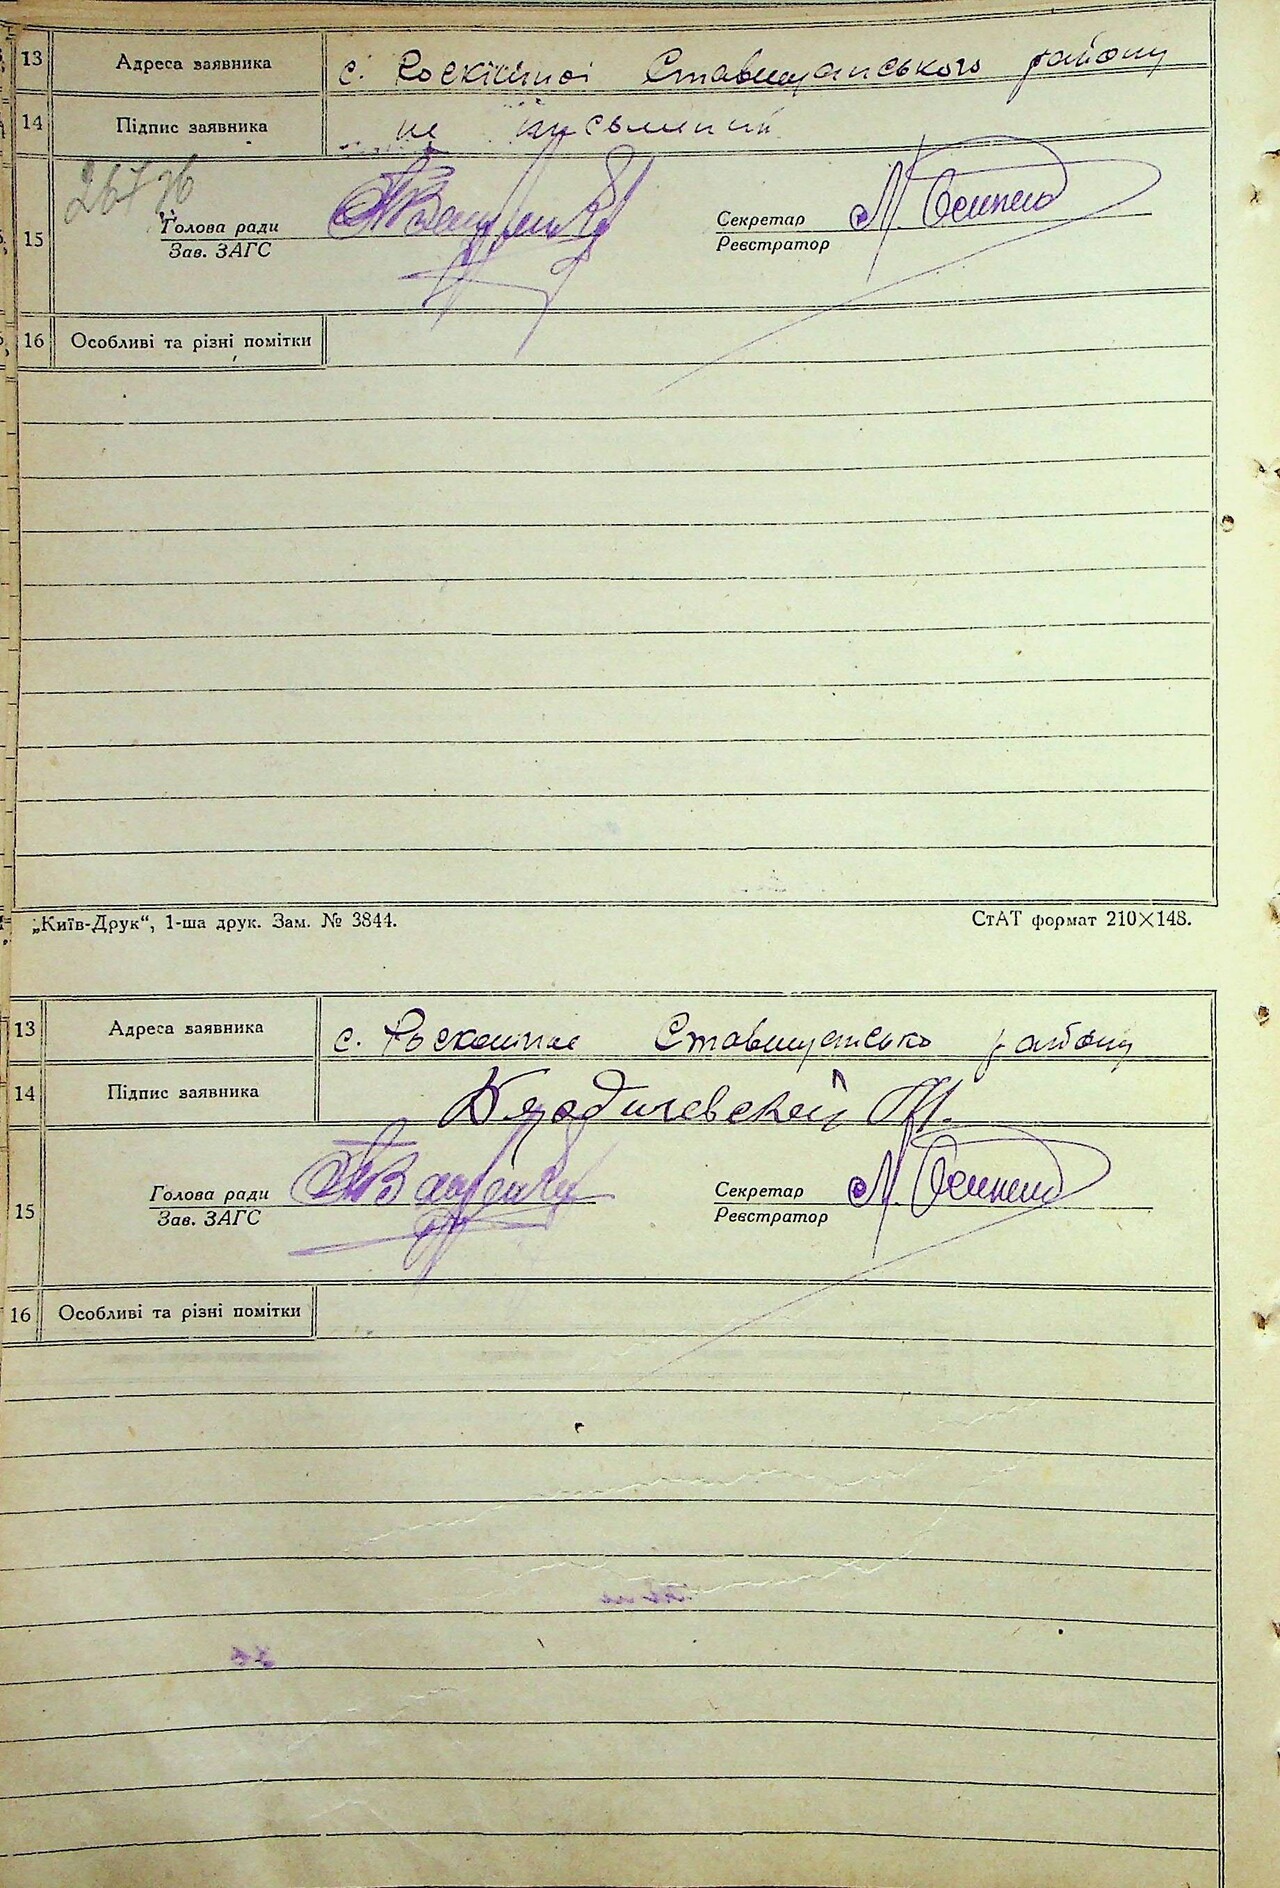 13 Адреса заявника с. Роскішноі Ставищанського району
14 Підпис заявника не письменний
15 Голова ради Секретар
Зав. ЗАГС Реєстратор
16 Особливі та різні помітки
„Київ-Друк“, 1-ша друк. Зам. № 3844. СтАТ формат 210×148.
13 Адреса заявника с. Ставищансько району
14 Підпис заявника
15 Голова ради Секретар
Зав. ЗАГС Реєстратор
16 Особливі та різні помітки